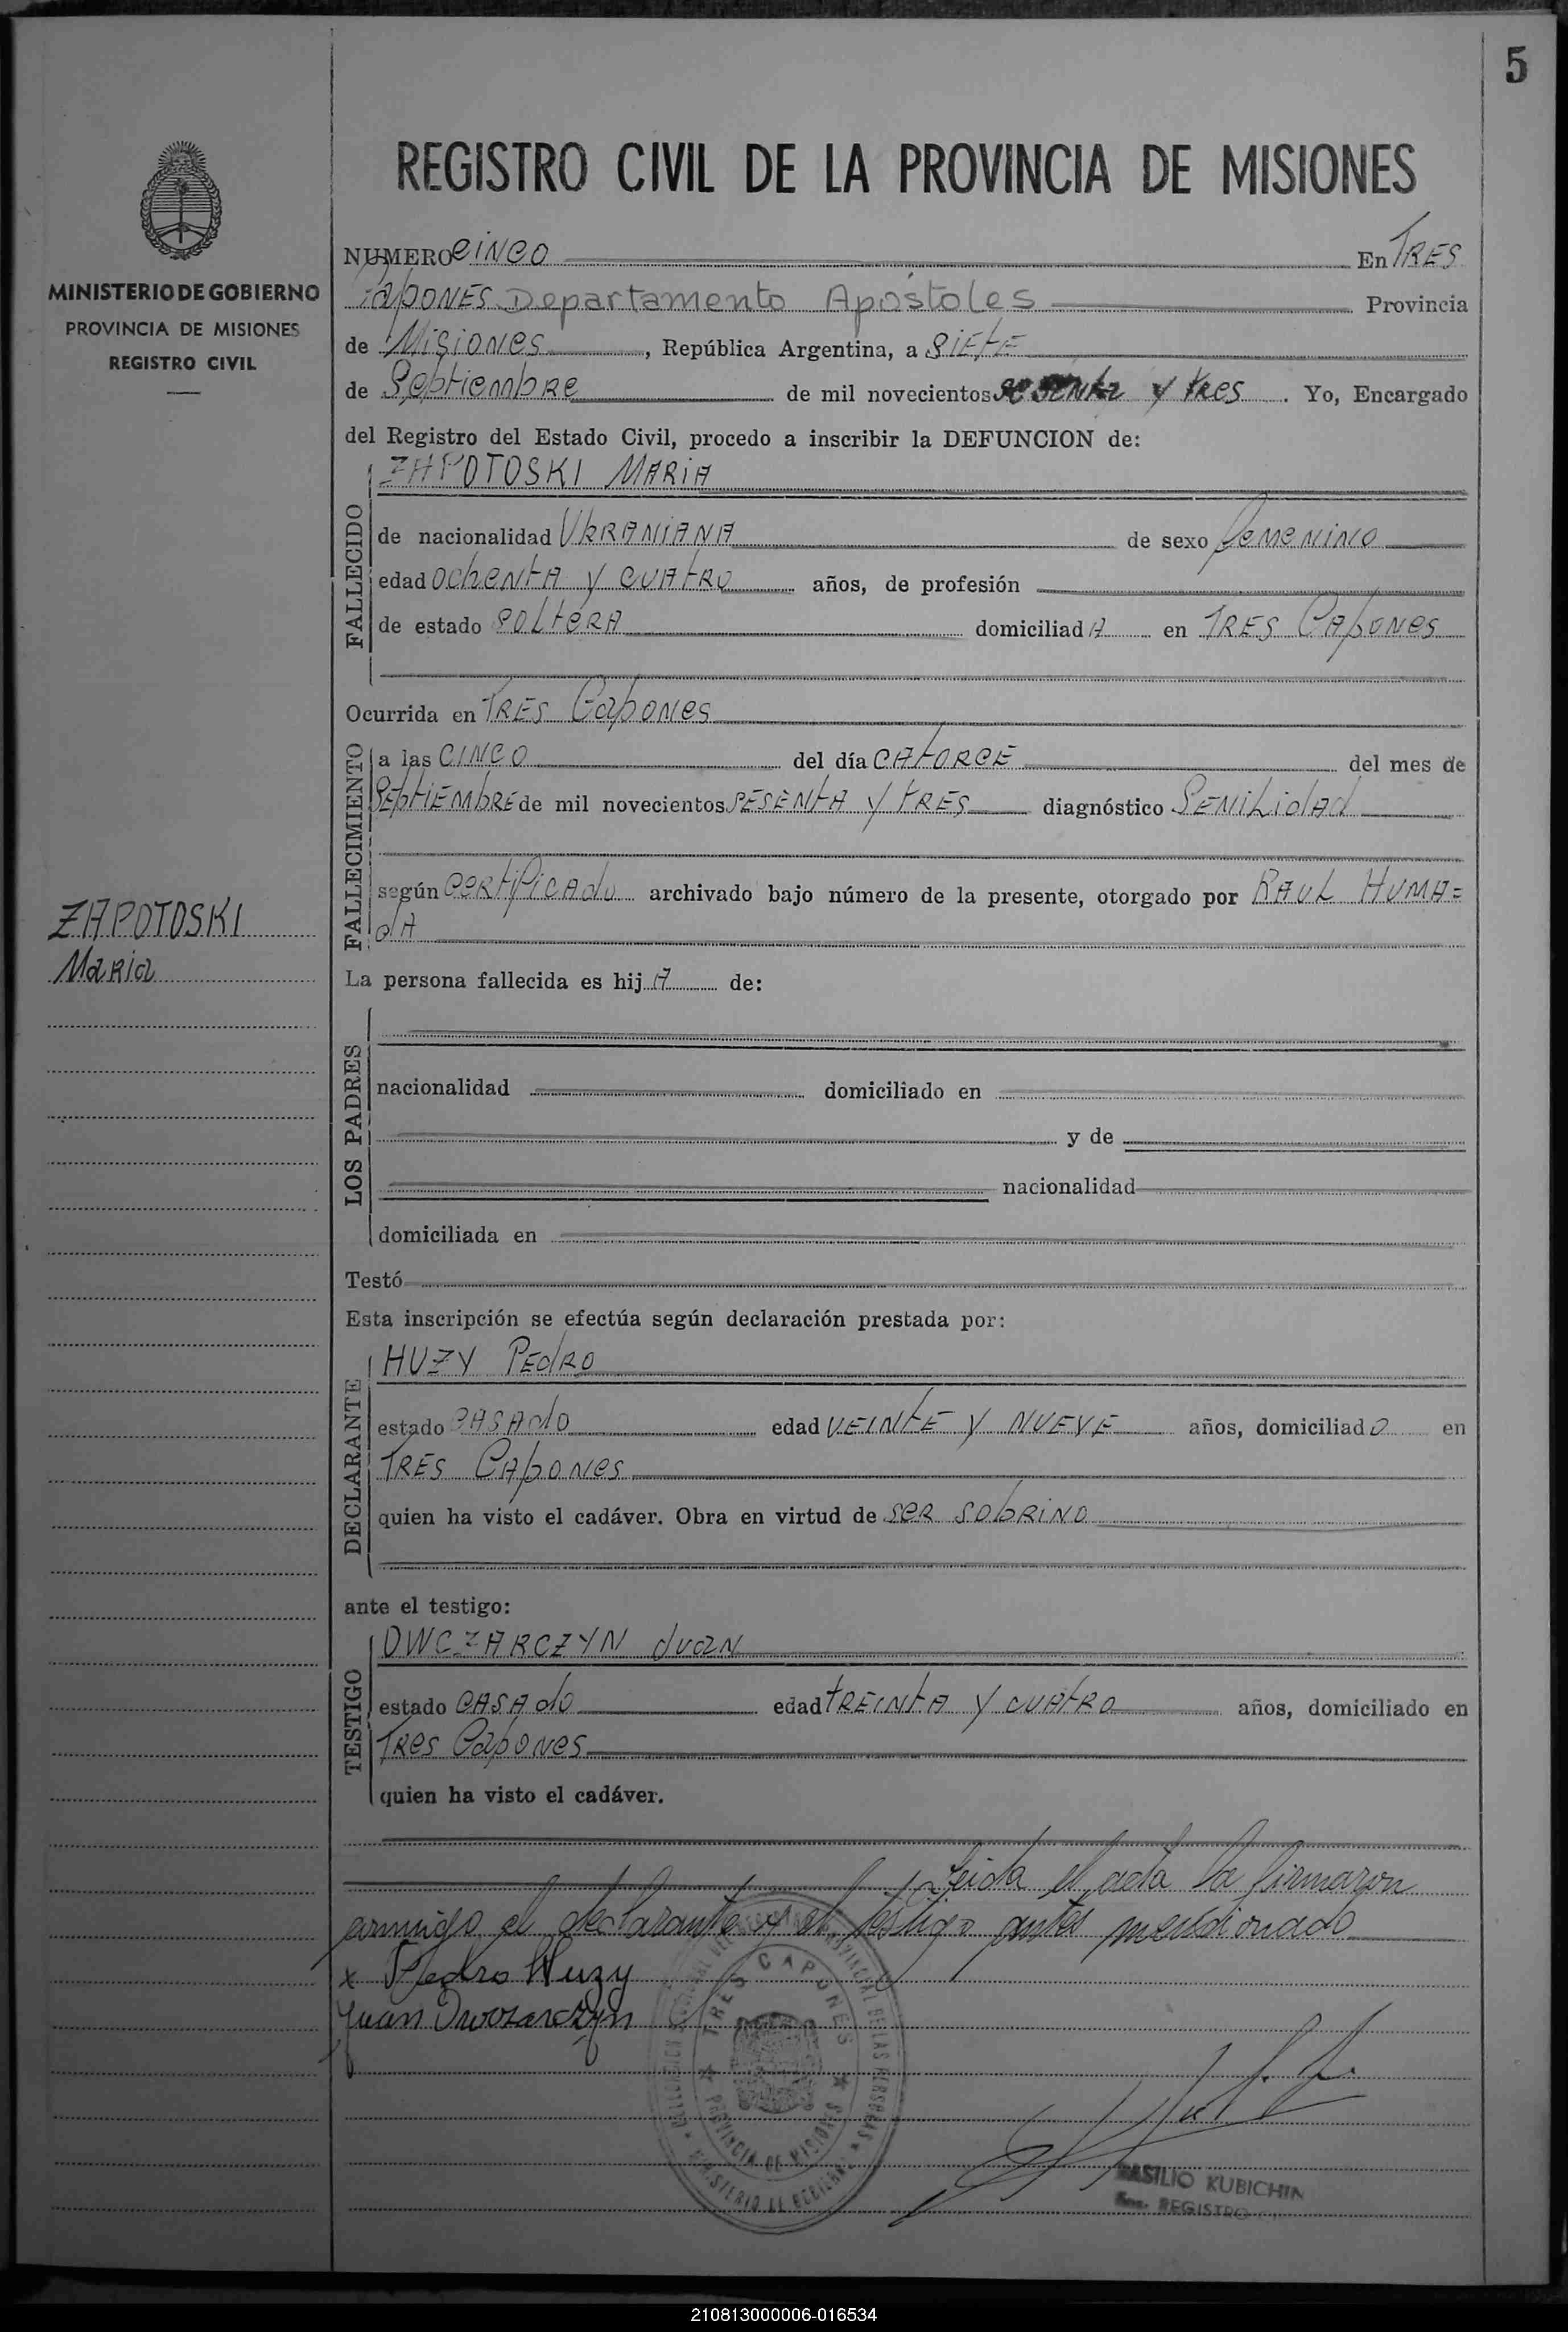 5
REGISTRO CIVIL DE LA PROVINCIA DE MISIONES
MINISTERIO DE GOBIERNO
PROVINCIA DE MISIONES
REGISTRO CIVIL
ZAPOTOSKI
Maria
NUMERO CINCO En TRES
CapONES Departamento Apóstoles Provincia
de Misiones, República Argentina, a SiEtE
de Septiembre de mil novecientos sesenta y tres. Yo, Encargado
del Registro del Estado Civil, procedo a inscribir la DEFUNCION de:
ZAPOTOSKI MARIA
FALLECIDO
de nacionalidad UkRANiANA de sexo femenino
edad OchentA y CUAtRO años, de profesión
de estado SOLtERA domiciliad A en TRES CApONES
Ocurrida en TRES Capones
FALLECIMIENTO
a las CINCO del día CAtORCE del mes de
SEptiEMbRE de mil novecientos SESENtA y tRES diagnóstico SENiLidAd
según CERtificAdo archivado bajo número de la presente, otorgado por RAUL HUMA=
dA
La persona fallecida es hij A de:
LOS PADRES
nacionalidad domiciliado en
y de
nacionalidad
domiciliada en
Testó
Esta inscripción se efectúa según declaración prestada por:
HUZY PEdRO
DECLARANTE
estado CASAdO edad VEINtE y NUEVE años, domiciliad O en
TRES CApONES
quien ha visto el cadáver. Obra en virtud de SER SObRiNO
ante el testigo:
OWCZARCZYN Juan
TESTIGO
estado CASAdO edad tREINtA y CUAtRO años, domiciliado en
TRES CapONES
quien ha visto el cadáver.
Leida el acta la firmaron
conmigo el declarante y el testigo antes mencionado
x Pedro Huzy
Juan Owczarczyn
TRES CAPONES
PROVINCIA DE MISIONES
MINISTERIO DE GOBIERNO
BASILIO KUBICHIN
REGISTRO
210813000006-016534